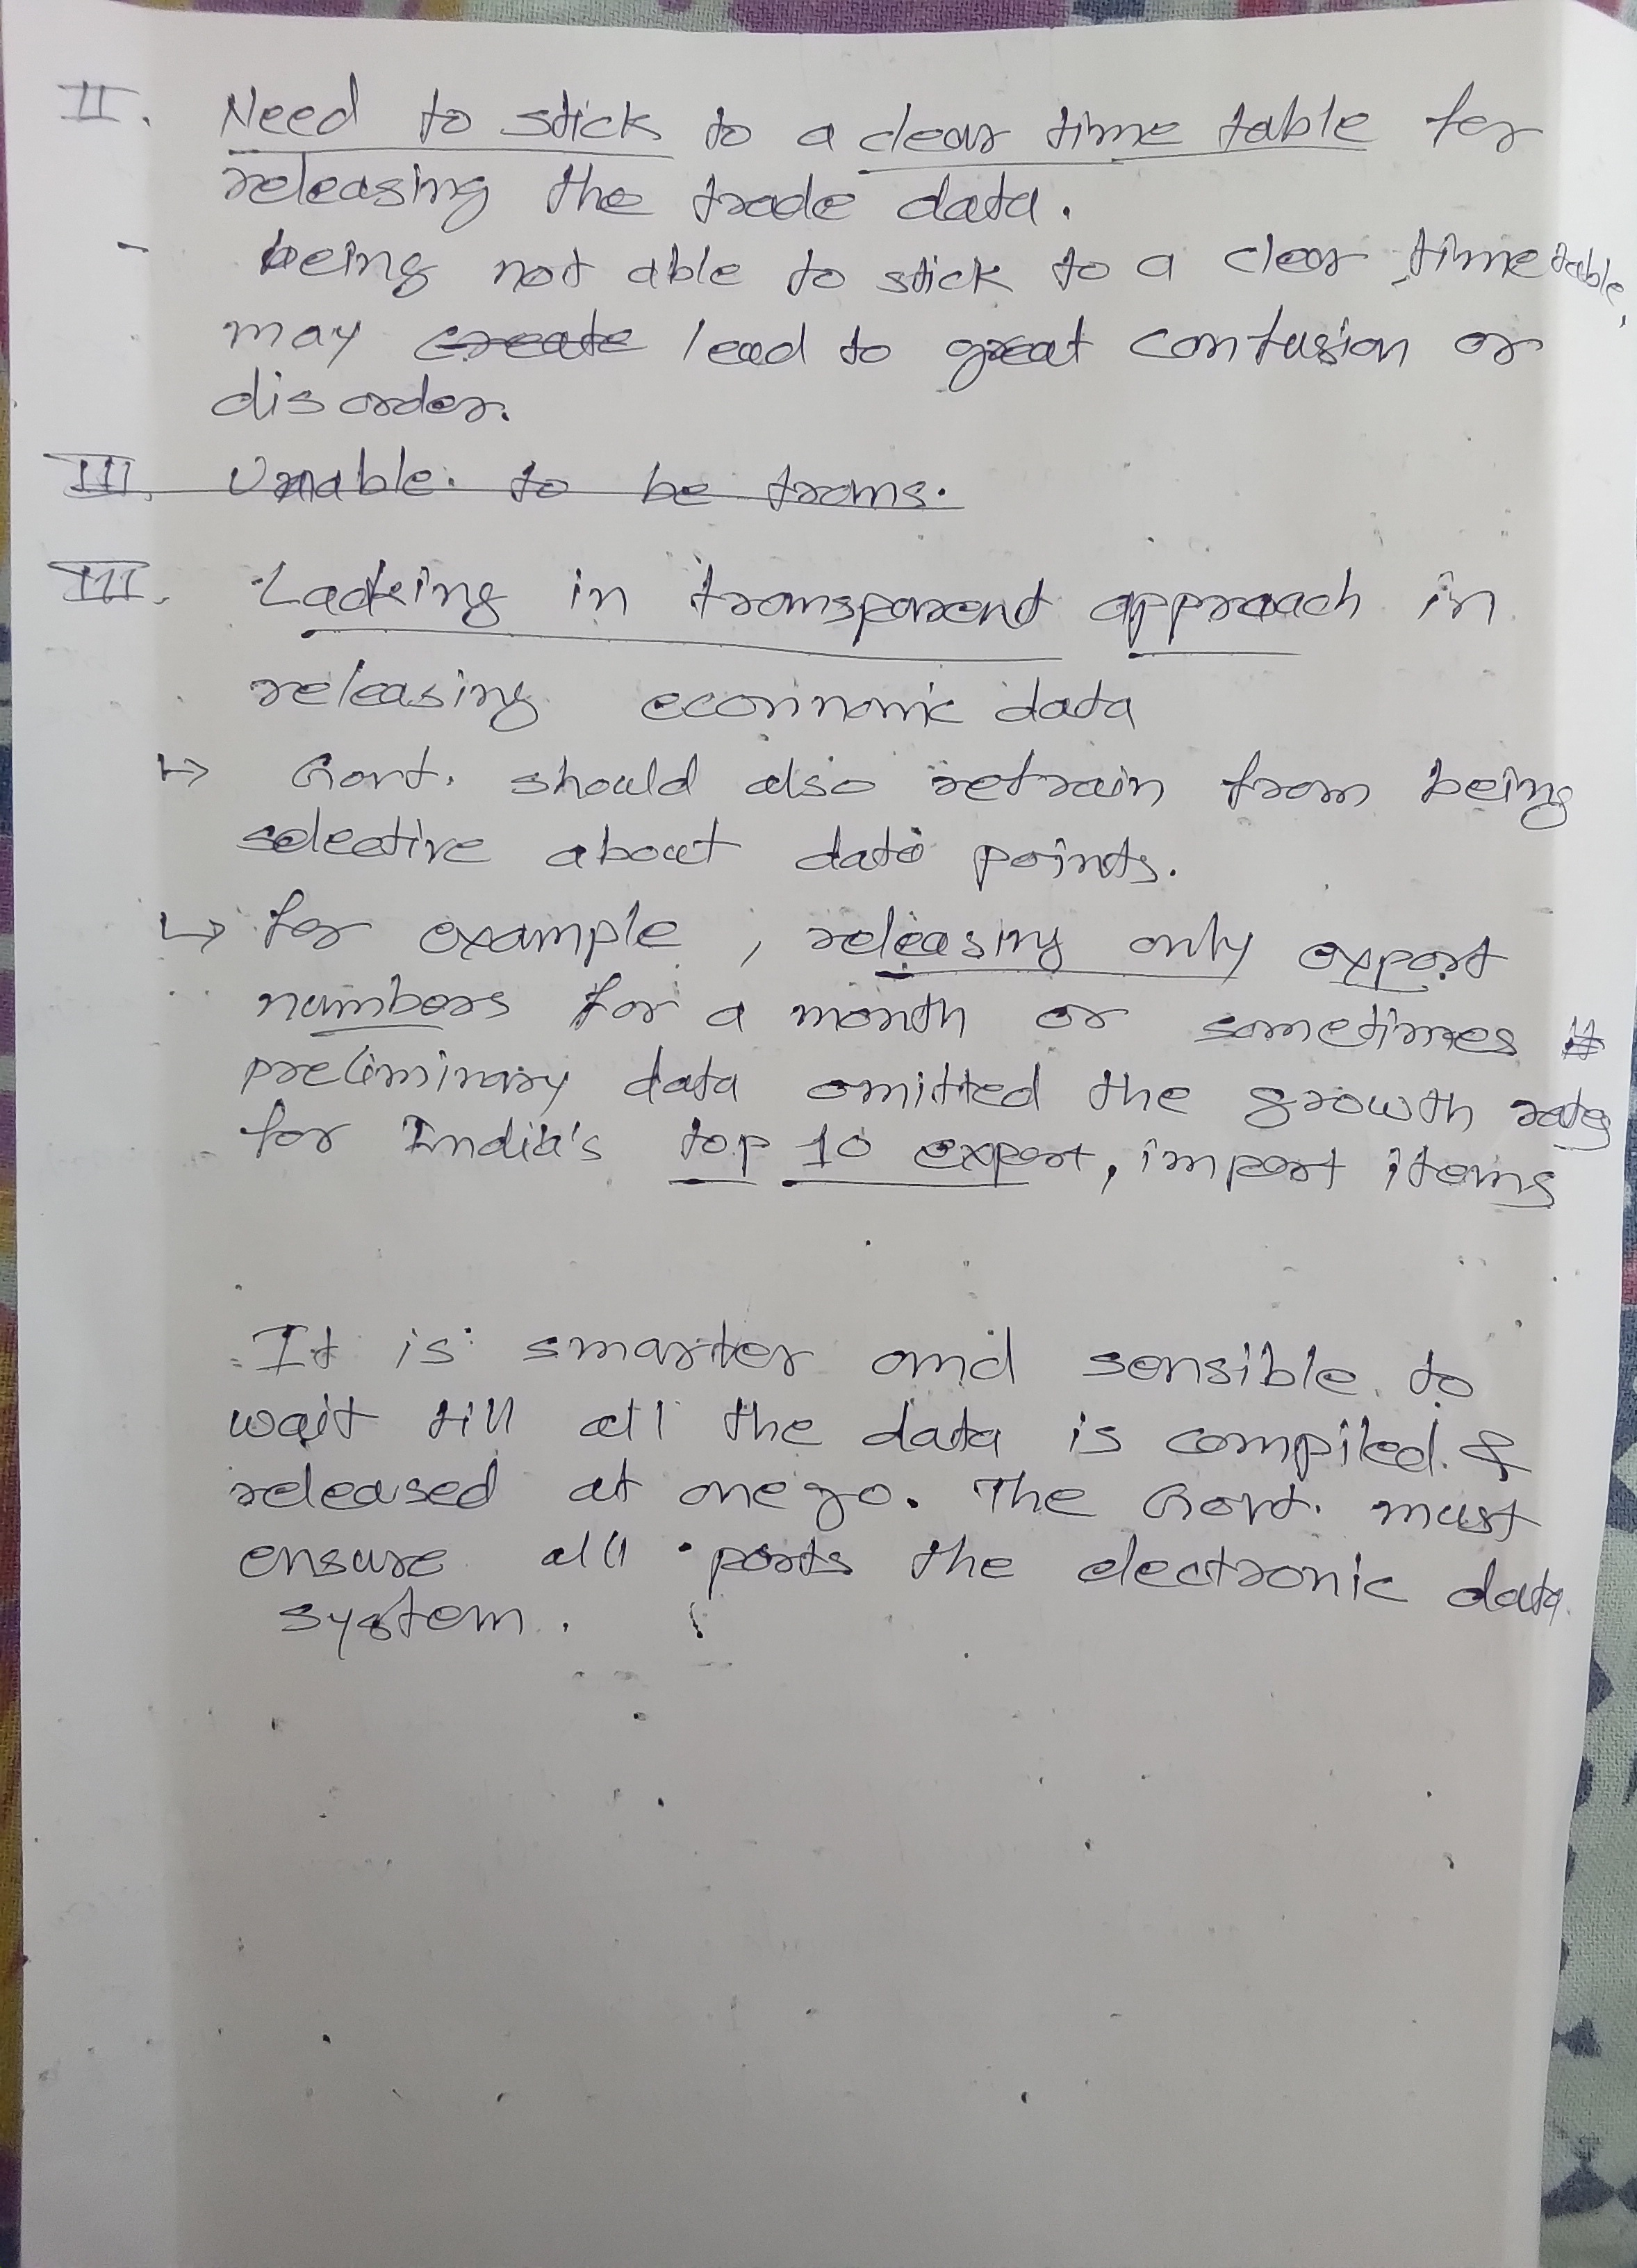 II. Need to stick to a clear time table for
releasing the trade data.
- being not able to stick to a clear timetable,
may create lead to great confusion or
disorder.
III. Unable to be trans.
III. Lacking in transparent approach in
releasing econnomic data
↳ Govt. should also refrain from being
selective about data points.
↳ for example, releasing only export
numbers for a month or sometimes
preliminary data omitted the growth rates
for India's top 10 export, import items
It is smarter and sensible to
wait till all the data is compiled &
released at one go. The Govt. must
ensure all ports the electronic data
system.